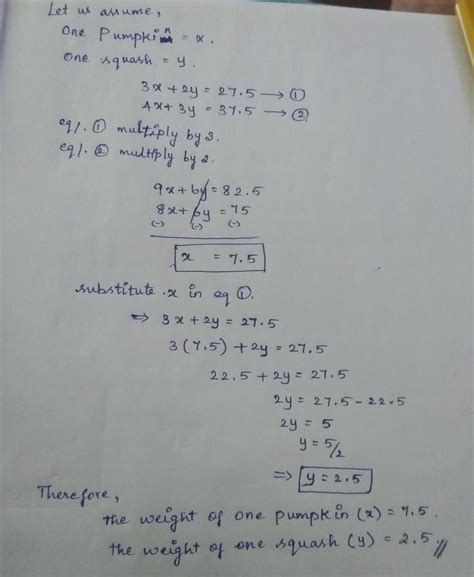 Let us assume,
One Pumpkin = x.
One squash = y.
3x + 2y = 27.5 → ①
4x + 3y = 37.5 → ②
eq/. ① multiply by 3.
eq/. ② multiply by 2.
9x + 6y = 82.5
8x + 6y = 75
(-) (-) (-)
x = 7.5
substitute x in eq ①.
⇒ 3x + 2y = 27.5
3(7.5) + 2y = 27.5
22.5 + 2y = 27.5
2y = 27.5 - 22.5
2y = 5
y = 5/2
⇒ y = 2.5
Therefore,
the weight of one pumpkin (x) = 7.5.
the weight of one squash (y) = 2.5 //